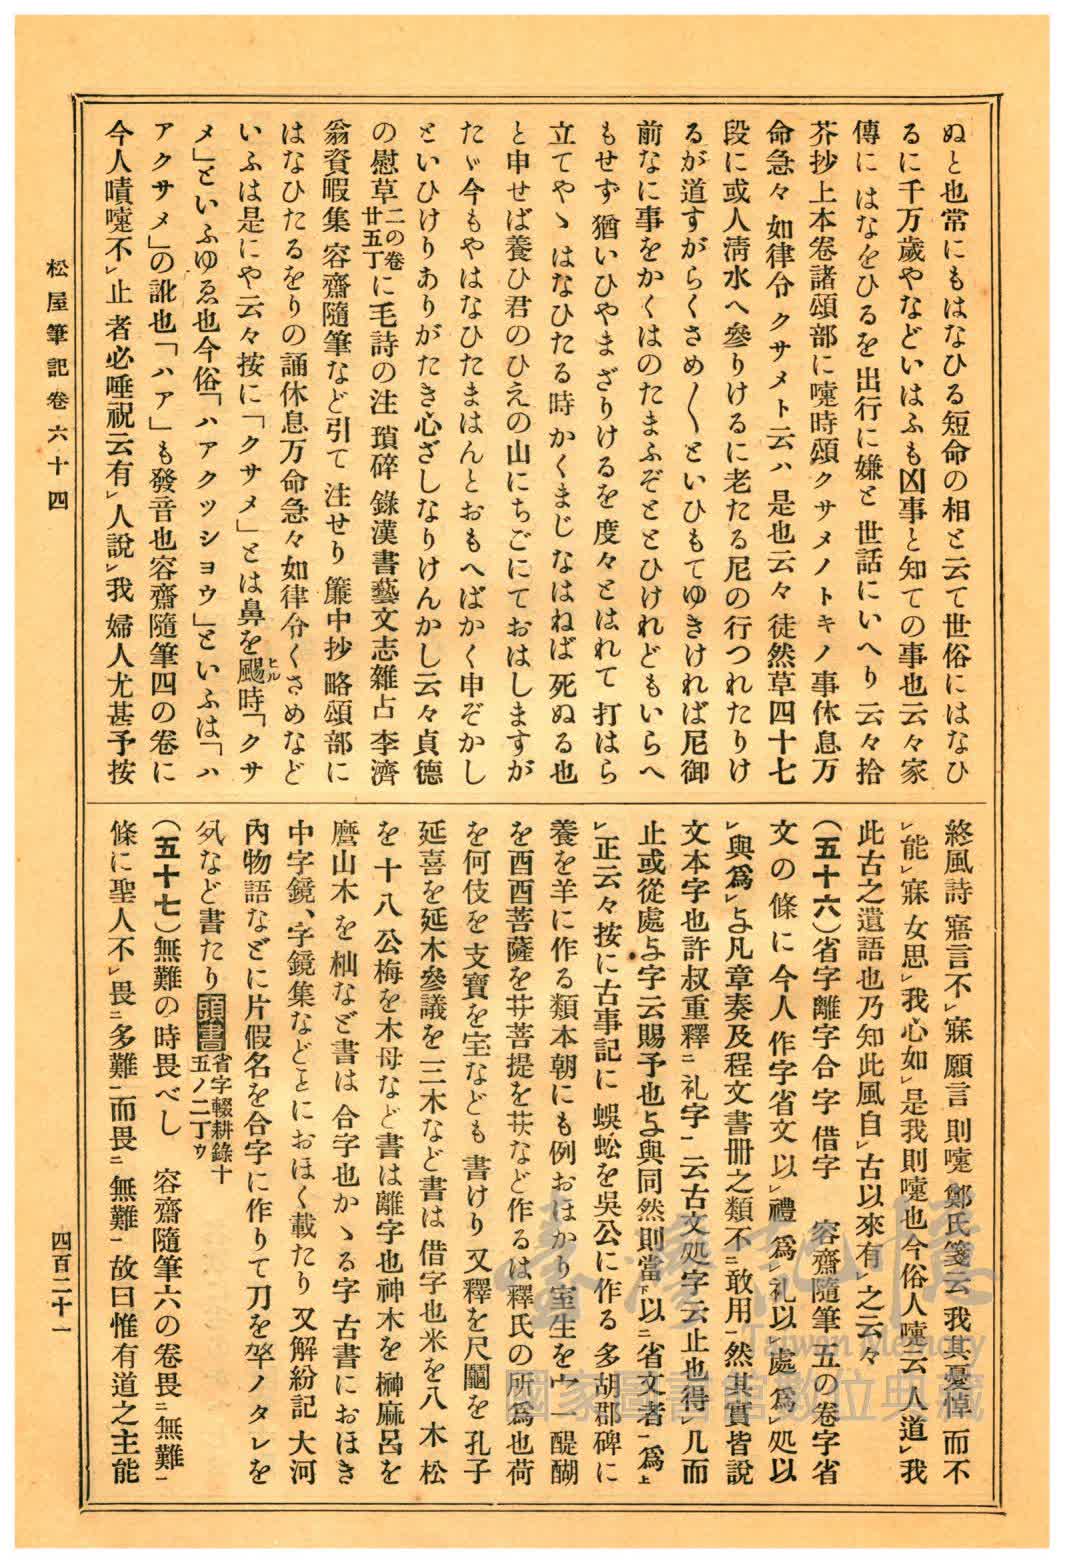 ぬと也常にもはなひる短命の相と云て世俗にはなひ
るに千万歳やなどいはふも凶事と知ての事也云々家
傳にはなをひるを出行に嫌と世話にいへり云々拾
芥抄上本卷諸頌部に嚔時頌クサメノトキノ事休息万
命急々如律令クサメト云ハ是也云々徒然草四十七
段に或人淸水へ參りけるに老たる尼の行つれたりけ
るが道すがらくさめ〱といひもてゆきければ尼御
前なに事をかくはのたまふぞととひけれどもいらへ
もせず猶いひやまざりけるを度々とはれて打はら
立てやゝはなひたる時かくまじなはねば死ぬる也
と申せば養ひ君のひえの山にちごにておはしますが
たゞ今もやはなひたまはんとおもへばかく申ぞかし
といひけりありがたき心ざしなりけんかし云々貞德
の慰草二の卷廿五丁に毛詩の注瑣碎錄漢書藝文志雜占李濟
翁資暇集容齋隨筆など引て注せり簾中抄略頌部に
はなひたるをりの誦休息万命急々如律令くさめなど
いふは是にや云々按に「クサメ」とは鼻を颺ヒル時「クサ
メ」といふゆゑ也今俗「ハアクツシヨウ」といふは「ハ
アクサメ」の訛也「ハア」も發音也容齋隨筆四の卷に
今人噴嚔不レ止者必唾祝云有レ人說レ我婦人尤甚予按
終風詩寤言不レ寐願言則嚔鄭氏箋云我其憂悼而不
レ能レ寐女思レ我心如レ是我則嚔也今俗人嚔云人道レ我
此古之遺語也乃知此風自レ古以來有レ之云々
(五十六)省字離字合字借字　容齋隨筆五の卷字省
文の條に今人作字省文以レ禮爲レ礼以レ處爲レ処以
レ與爲レ与凡章奏及程文書冊之類不二敢用一然其實皆說
文本字也許叔重釋二礼字一云古文処字云止也得レ几而
止或從處与字云賜予也与與同然則當下以二省文者一爲上
レ正云々按に古事記に蜈蚣を吳公に作る多胡郡碑に
養を羊に作る類本朝にも例おほかり室生をウ一醍醐
を酉酉菩薩を𦬇菩提を𦯉など作るは釋氏の所爲也荷
を何伎を支寶を宝なども書けり又釋を尺圝を孔子
延喜を延木參議を三木など書は借字也米を八木松
を十八公梅を木母など書は離字也神木を榊麻呂を
麿山木を杣など書は合字也かゝる字古書におほき
中字鏡、字鏡集などとにおほく載たり又解紛記大河
內物語などに片假名を合字に作りて刀をノタレを
など書たり頭書省字輟耕錄十五ノ二丁ウ
(五十七)無難の時畏べし　容齋隨筆六の卷畏二無難一
條に聖人不レ畏二多難一而畏二無難一故曰惟有道之主能
松屋筆記卷六十四
四百二十一
臺灣記憶
Taiwan Memory
國家圖書館數位典藏